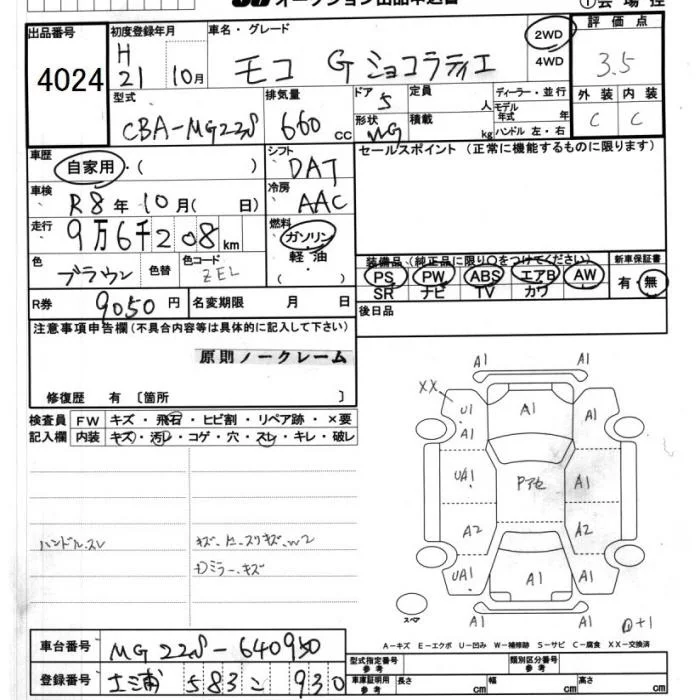 オークション出品申込書
出品番号 4024
初度登録年月 H 21 10月
車名・グレード モコ G ショコラティエ
2WD
4WD
評価点 3.5
外装 内装
C C
型式 CBA-MG22S
排気量 660 cc
ドア 5
形状
定員 人
積載 kg
ディーラー・並行
モデル年式 年
ハンドル 左・右
車歴 自家用・( )
シフト DAT
セールスポイント (正常に機能するものに限ります)
車検 R8年10月( 日)
冷房 AAC
走行 9万6千208km
燃料 ガソリン・軽油・( )
色 ブラウン 色替 色コード ZEL
装備品(純正品に限り○をつけてください)
PS PW ABS エアB AW
SR ナビ TV カワ
新車保証書 有・無
R券 9050円
名変期限 月 日
後日品
注意事項申告欄(不具合内容等は具体的に記入して下さい)
原則ノークレーム
修復歴 有 〔箇所 〕
検査員記入欄
FW キズ・飛石・ヒビ割・リペア跡・×要
内装 キズ・汚レ・コゲ・穴・スレ・キレ・破レ
ハンドルスレ
ミラーキズ
A1 A1
XX
U1 A1 A1
A1
UA1 A1
A2 A2
UA1 A1 A1
A1 A1
スペア
A-キズ E-エクボ U-凹み W-補修跡 S-サビ C-腐食 XX-交換済
車台番号 MG22S-640950
登録番号 土浦 583 こ 930
型式指定番号 参考
類別区分番号 参考
車庫証明用 参考 長さ cm 幅 cm 高さ cm